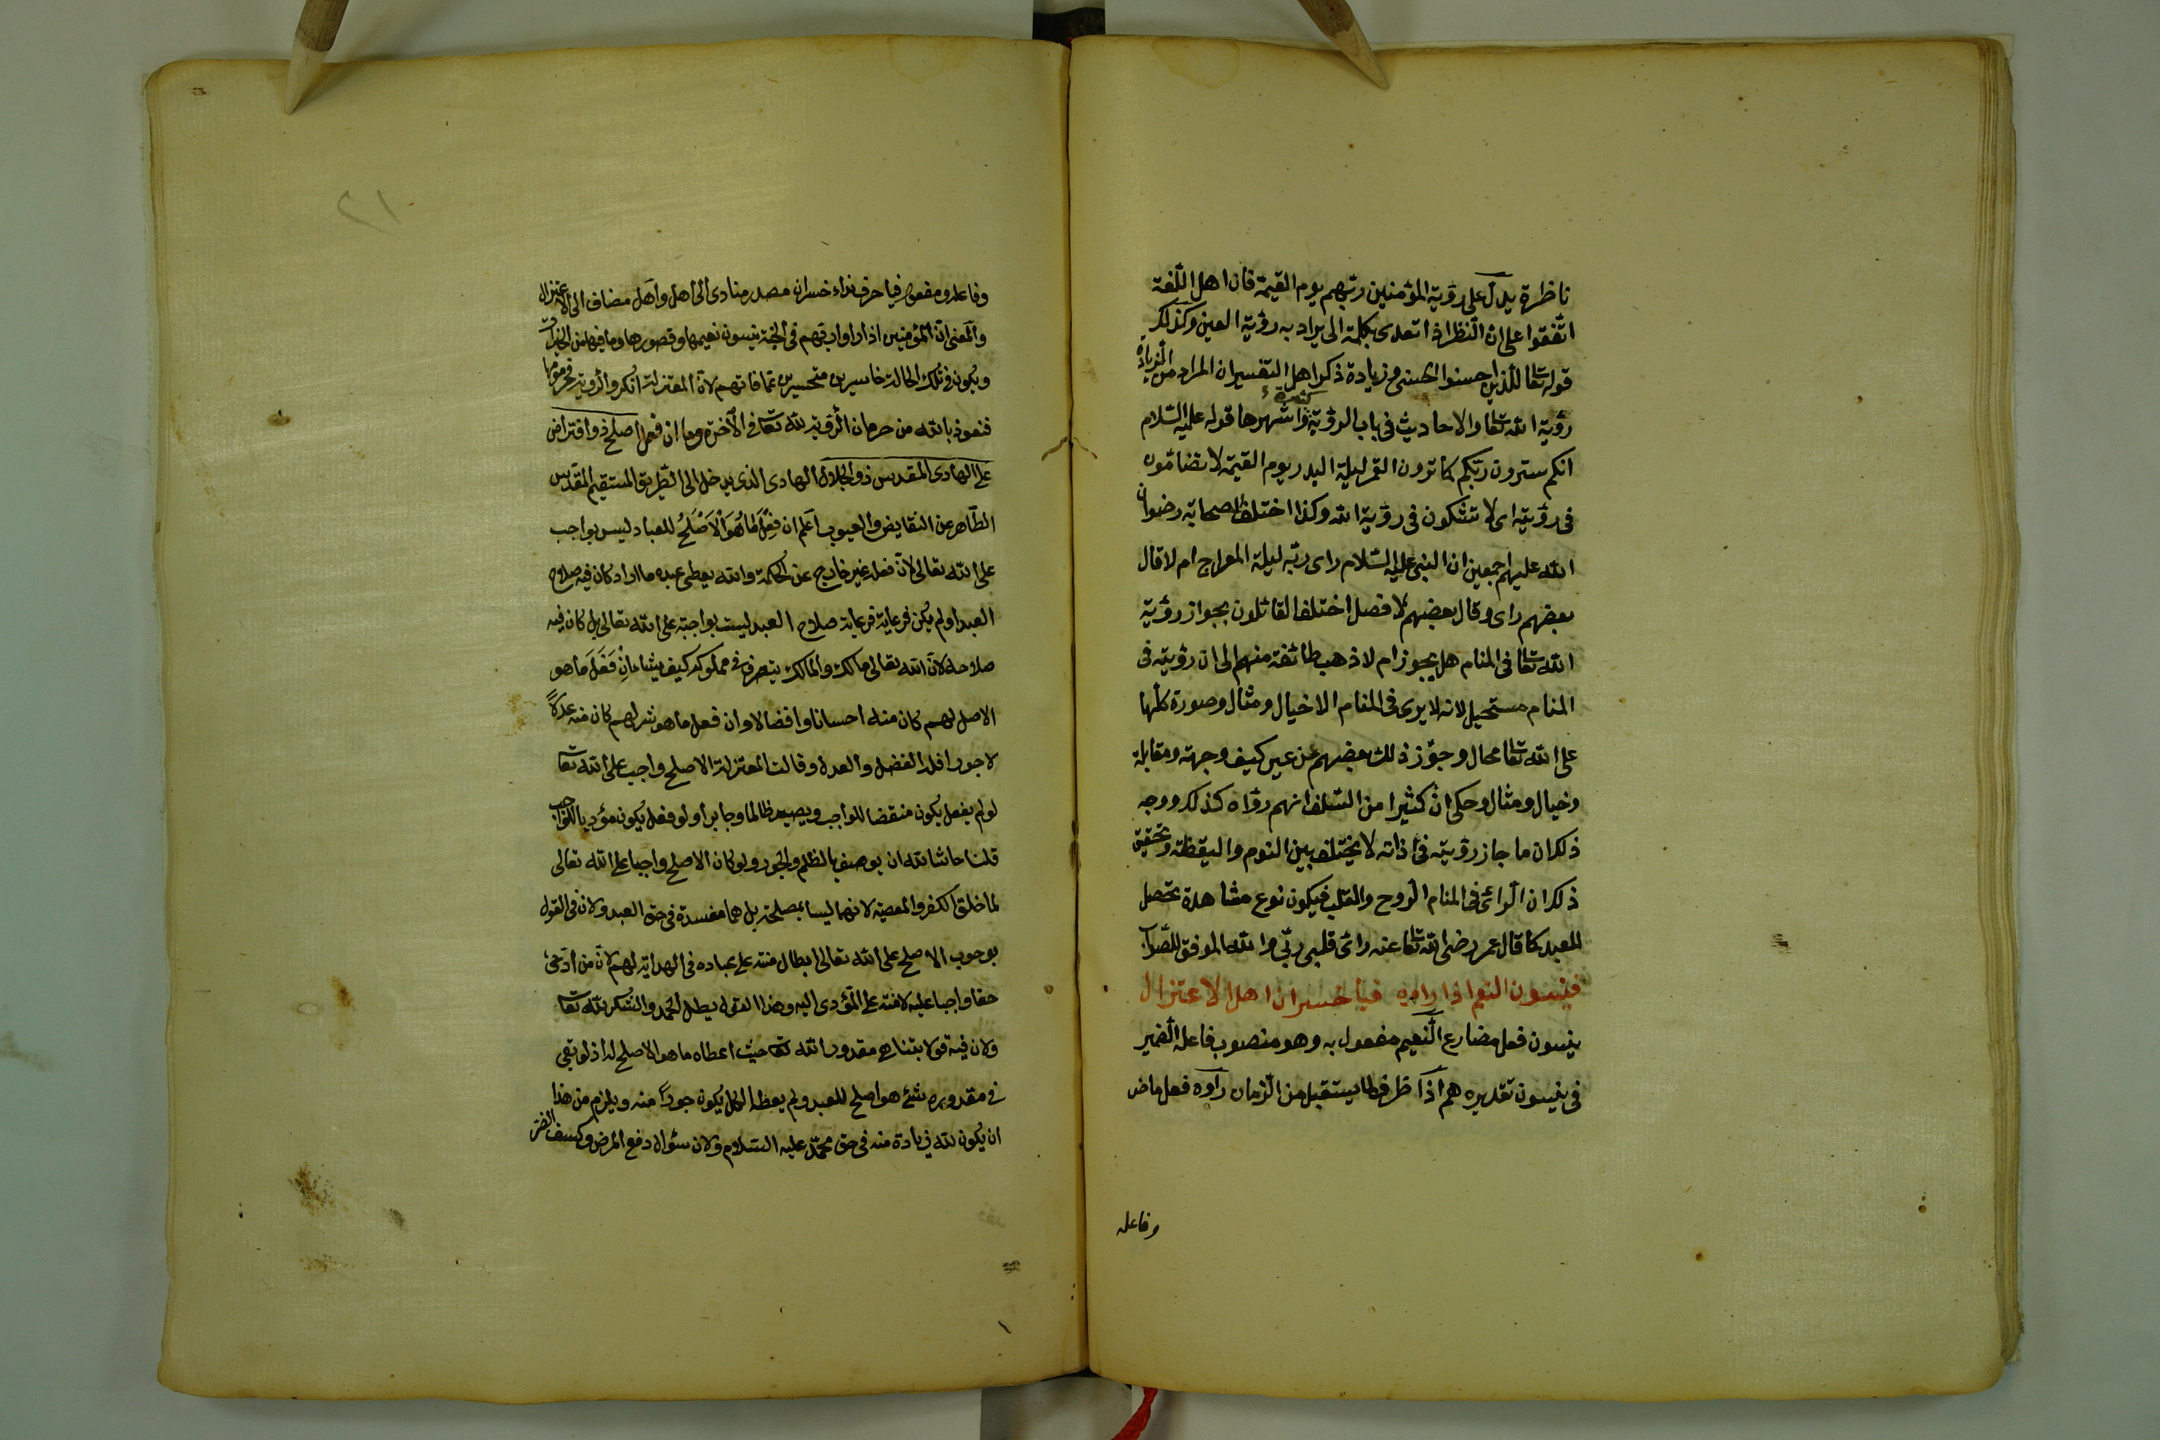 ناظرة يدل على رؤية المؤمنين ربهم يوم القيمة فان اهل اللغة
اتفقوا على ان النظر اذا تعدى بكلمة الى يراد به رؤية العين وكذلك
قوله تعا للذين احسنوا الحسنى وزيادة ذكر اهل التفسير ان المراد من الزيادة
رؤية الله تعا والاحاديث فى باب الرؤية كثيرة واشهرها قوله عليه السلام
انكم سترون ربكم كما ترون القمر ليلة البدر يوم القيمة لا تضامون
فى رؤيته اى لا تشكون فى رؤية الله وكذا اختلف الصحابة رضوان
الله عليهم اجمعين ان النبى عليه السلام راى ربه ليلة المعراج ام لا قال
بعضهم راى وقال بعضهم لا فصل اختلف القائلون بجواز رؤية
الله تعا فى المنام هل يجوز ام لا ذهب طائفة منهم الى ان رؤيته فى
المنام مستحيل لانه لا يرى فى المنام الا خيال ومثال وصورة كلها
على الله تعا محال وجوز ذلك بعضهم من غير كيف وجهة ومقابلة
وخيال ومثال وحكى ان كثيرا من السلف انهم رؤاه كذلك ووجه
ذلك ان ما جاز رؤيته فى ذاته لا يختلف بين النوم واليقظة وتحقيق
ذلك ان الرائى فى المنام الروح والقلب فيكون نوع مشاهدة تحصل
للعبد كما قال عمر رضى الله تعا عنه رائ قلبى ربى والله الموفق للصواب
فينسون النعيم اذا راوه فيا خسران اهل الاعتزال
ينسون فعل مضارع النعيم مفعول به وهو منصوب فاعله الضمير
فى ينسون تقديره هم اذا ظرف لما يستقبل من الزمان راوه فعل ماض
وفاعله
٢١
وفاعله ومفعوله فيا حرف نداء خسران مصدر منادى الى اهل واهل مضاف الى الاعتزال
والمعنى ان المؤمنين اذا راوا ربهم فى الجنة ينسون نعيمها وقصورها وما فيها من
ويكون فى تلك الحالة خاسرين متحسرين عما فاتهم لان المعتزلة انكروا الرؤية فحرموها
فنعوذ بالله من حرمان الرؤية لله تعا فى الاخرة وما ان فعل اصلح ذو افتراض
على الهادى المقدس ذو الجلال الهادى الذى يدخل الى الطريق المستقيم المقدس
الطاهر عن النقايض والعيوب اعلم ان فعل ما هو الاصلح للعباد ليس بواجب
على الله تعالى لان فعله غير خارج عن الحكمة والله يعطى عبده ما اراد كان فيه صلاح
العبد او لم يكن فرعاية فرعاية صلاح العبد ليست بواجبة على الله تعالى بل كان فيه
صلاحه لان الله تعالى مالك والمالك يتصرف فى مملوكه كيف يشاء فان فعل ما هو
الاصل لهم كان منه احسانا وافضالا وان فعل ما هو شر لهم كان منه عدلا
لا جورا فله الفضل والعدل وقالت المعتزلة الاصلح واجب على الله تعا
لو لم يفعل يكون منقضا للواجب ويصير ظالما وجايرا ولو فعل يكون مؤديا للواجب
قلنا حاشا لله ان يوصف بالظلم والجور ولو كان الاصلح واجبا على الله تعالى
لما خلق الكفر والمعصية لانهما ليسا بمصلحة بل هما مفسدة فى حق العبد ولان فى القول
بوجوب الاصلح على الله تعالى ابطال منته على عباده فى الهداية لهم لان من ادى
حقا واجبا عليه لا منة على المؤدى اليه وهذا القول يبطل الحمد والشكر لله تعا
ولان فيه قولا بتناهى مقدور الله تعا حيث اعطاه ما هو الاصلح له اذ لو بقى
فى مقدوره شئ هو اصلح للعبد ولم يعطه الكل يكون جورا منه ويلزم من هذا
ان يكون لله زيادة منه فى حق محمد عليه السلام ولان سؤال دفع المرض وكشف الضر